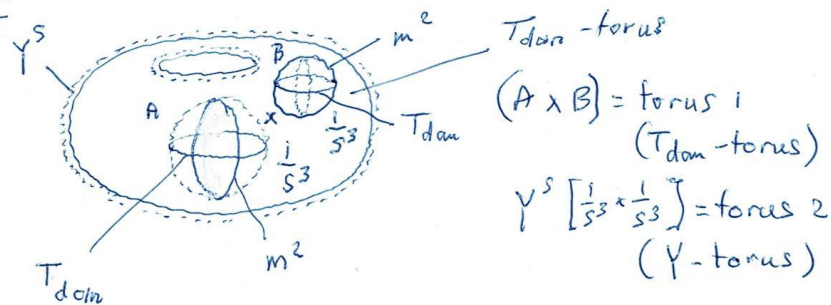 Y^S
m^2
T_dom-torus
B
A
x
i/S^3
T_dom
i/S^3
m^2
T_dom
(A x B) = torus 1
(T_dom-torus)
Y^S [i/S^3 x i/S^3] = torus 2
(Y-torus)